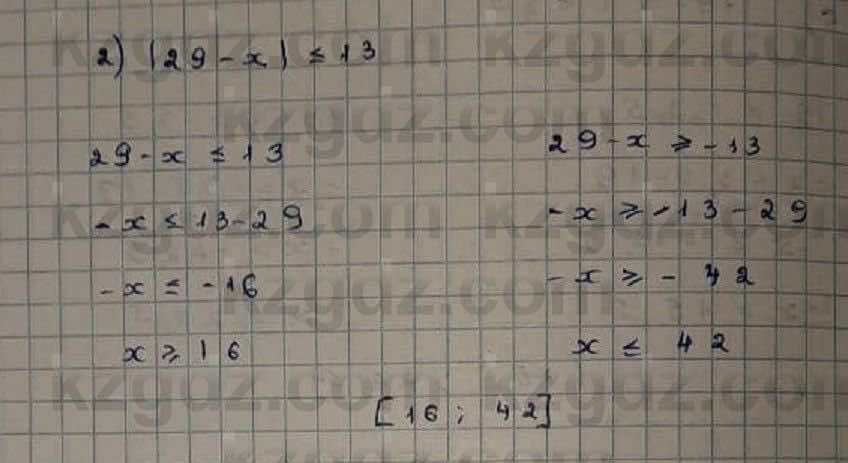 2) |29 - x| ≤ 13
29 - x ≤ 13
29 - x ≥ -13
- x ≤ 13 - 29
- x ≥ -13 - 29
- x ≤ -16
- x ≥ - 42
x ≥ 16
x ≤ 42
[16; 42]
kzgdz.com kzgdz.com
kzgdz.com
kzgdz.com kzgdz.com
kzgdz.com
kzgdz.com kzgdz.com